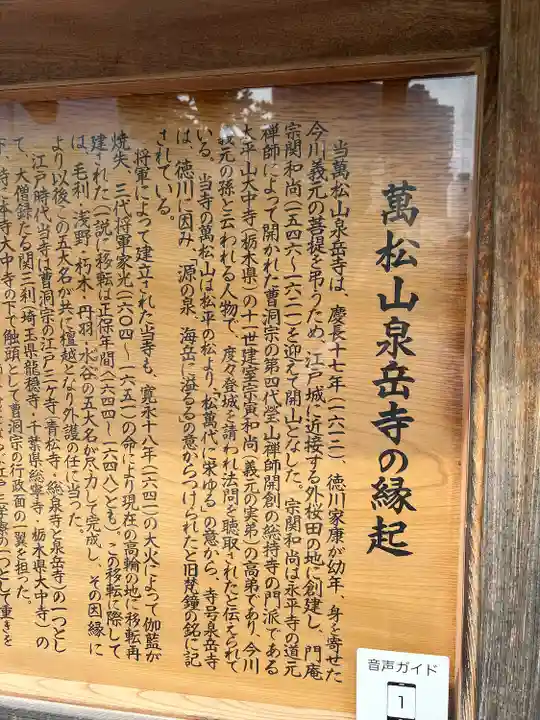 萬松山泉岳寺の縁起
当萬松山泉岳寺は、慶長十七年（一六一二）、徳川家康が幼年、身を寄せた
今川義元の菩提を弔うため、江戸城に近接する外桜田の地に創建し、門庵
宗関和尚（一五四六～一六二一）を迎えて開山となした。宗関和尚は永平寺の道元
禅師によって開かれた曹洞宗の第四代瑩山禅師開創の總持寺の門派である
太平山大中寺（栃木県）の十一世建室宗寅和尚（義元の実弟）の高弟であり、今川
義元の孫と云われる人物で、度々登城を請われ法問を聴取されたと伝えられて
いる。当寺の萬松山は松平の松より、「松萬代に栄ゆる」の意から、寺号泉岳寺
は、徳川に因み、「源の泉 海岳に溢るる」の意からつけられたと旧梵鐘の銘に記
されている。
将軍によって建立された当寺も、寛永十八年（一六四一）の大火によって伽藍が
焼失、三代将軍家光（一六〇四～一六五一）の命により現在の高輪の地に移転再
建された（一説に移転は正保年間（一六四四～一六四八）とも）。この移転に際して
は、毛利・浅野・朽木・丹羽・水谷の五大名が尽力して完成し、その因縁に
より以後この五大名が共に檀越となり外護の任に当った。
江戸時代当寺は曹洞宗の江戸三ケ寺（青松寺・総泉寺と泉岳寺）の一つとし
て、大僧録たる関三刹（埼玉県龍穏寺・千葉県總寧寺・栃木県大中寺）の
大中寺の下で触頭として曹洞宗の行政面の一翼を担った。
音声ガイド
1